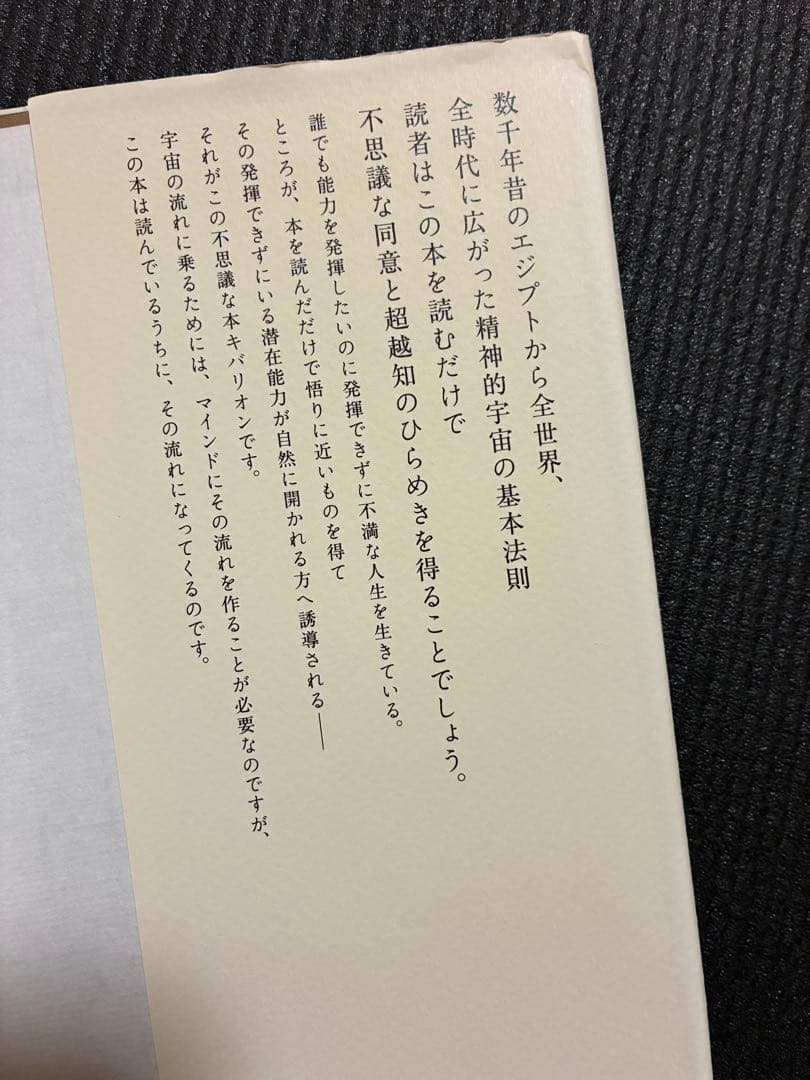 数千年昔のエジプトから全世界、
全時代に広がった精神的宇宙の基本法則
読者はこの本を読むだけで
不思議な同意と超越知のひらめきを得ることでしょう。
誰でも能力を発揮したいのに発揮できずに不満な人生を生きている。
ところが、本を読んだだけで悟りに近いものを得て
その発揮できずにいる潜在能力が自然に開かれる方へ誘導される──
それがこの不思議な本キバリオンです。
宇宙の流れに乗るためには、マインドにその流れを作ることが必要なのですが、
この本は読んでいるうちに、その流れになってくるのです。